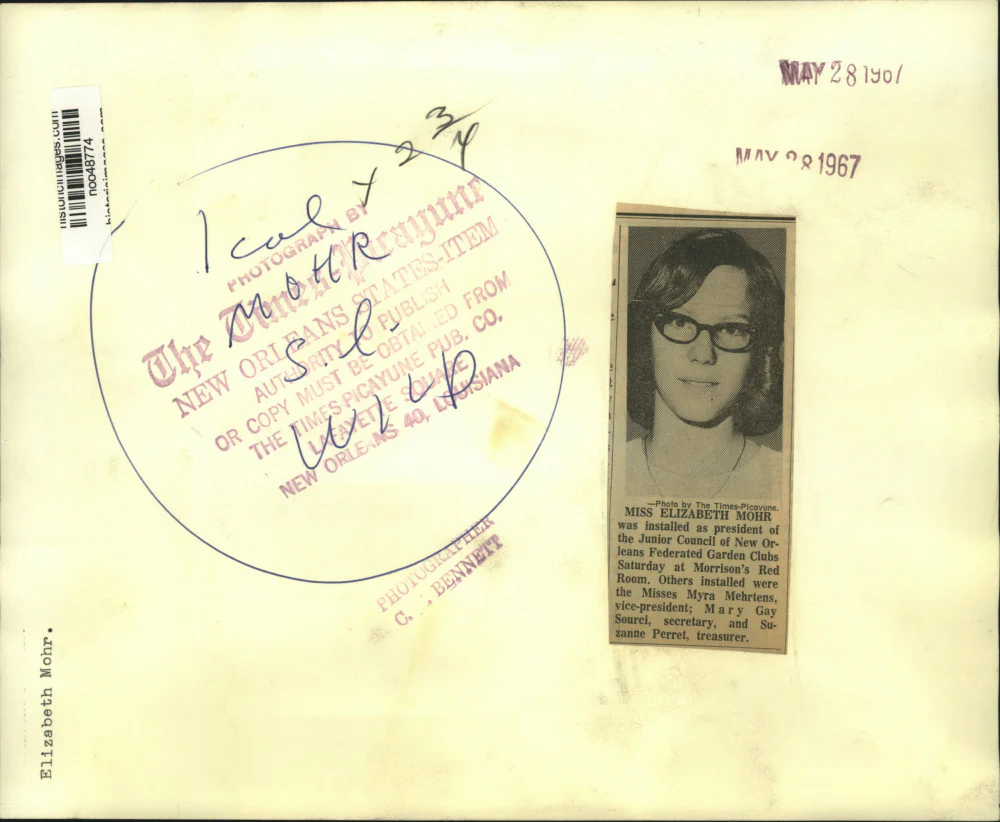 MAY 28 1967
MAY 28 1967
historicimages.com
noo48774
historicimages.com
2 3/4
1 col x
MOHR
S.l.
WILD
PHOTOGRAPH BY
The Times-Picayune
NEW ORLEANS STATES-ITEM
AUTHORITY TO PUBLISH
OR COPY MUST BE OBTAINED FROM
THE TIMES-PICAYUNE PUB. CO.
LAFAYETTE SQUARE
NEW ORLEANS 40, LOUISIANA
PHOTOGRAPHER
C. BENNETT
—Photo by The Times-Picayune.
MISS ELIZABETH MOHR
was installed as president of
the Junior Council of New Or-
leans Federated Garden Clubs
Saturday at Morrison's Red
Room. Others installed were
the Misses Myra Mehrtens,
vice-president; Mary Gay
Sourci, secretary, and Su-
zanne Perret, treasurer.
Elizabeth Mohr.